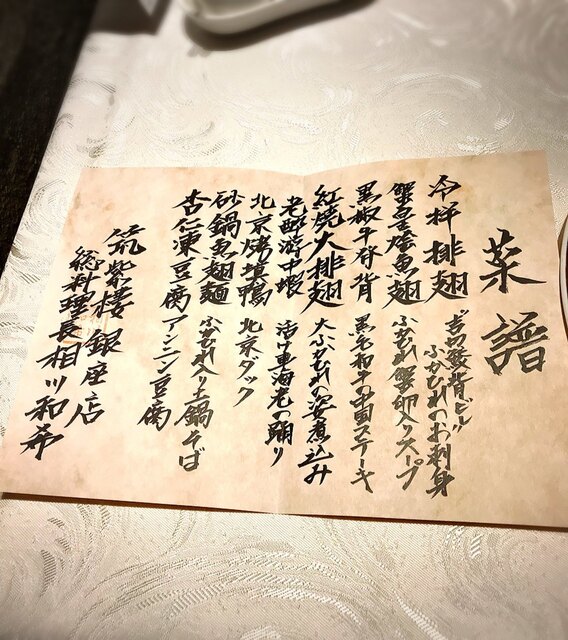 菜譜
冷拌排翅
ふかひれのお刺身
蟹皇燴魚翅 ふかひれ蟹卵入りスープ
黒椒牛脊背 黒毛和牛の中国ステーキ
紅焼大排翅 大ふかひれの姿煮込み
老酔游中蝦 活け車海老の踊り
北京烤填鴨 北京ダック
砂鍋魚翅麺 ふかひれ入り土鍋そば
杏仁凍豆腐 アンニン豆腐
筑紫樓 銀座店
総料理長 相川和希